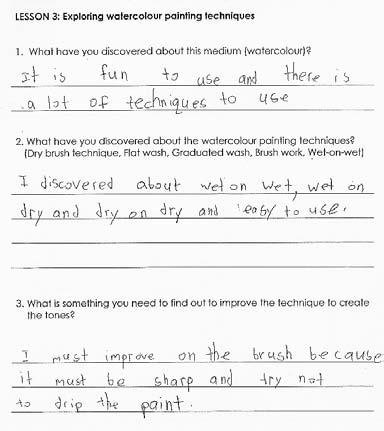 LESSON 3: Exploring watercolour painting techniques
1. What have you discovered about this medium (watercolour)?
It is fun to use and there is
a lot of techniques to use
2. What have you discovered about the watercolour painting techniques?
(Dry brush technique, Flat wash, Graduated wash, Brush work, Wet-on-wet)
I discovered about wet on wet, wet on
dry and dry on dry and easy to use.
3. What is something you need to find out to improve the technique to create
the tones?
I must improve on the brush because
it must be sharp and try not
to drip the paint.